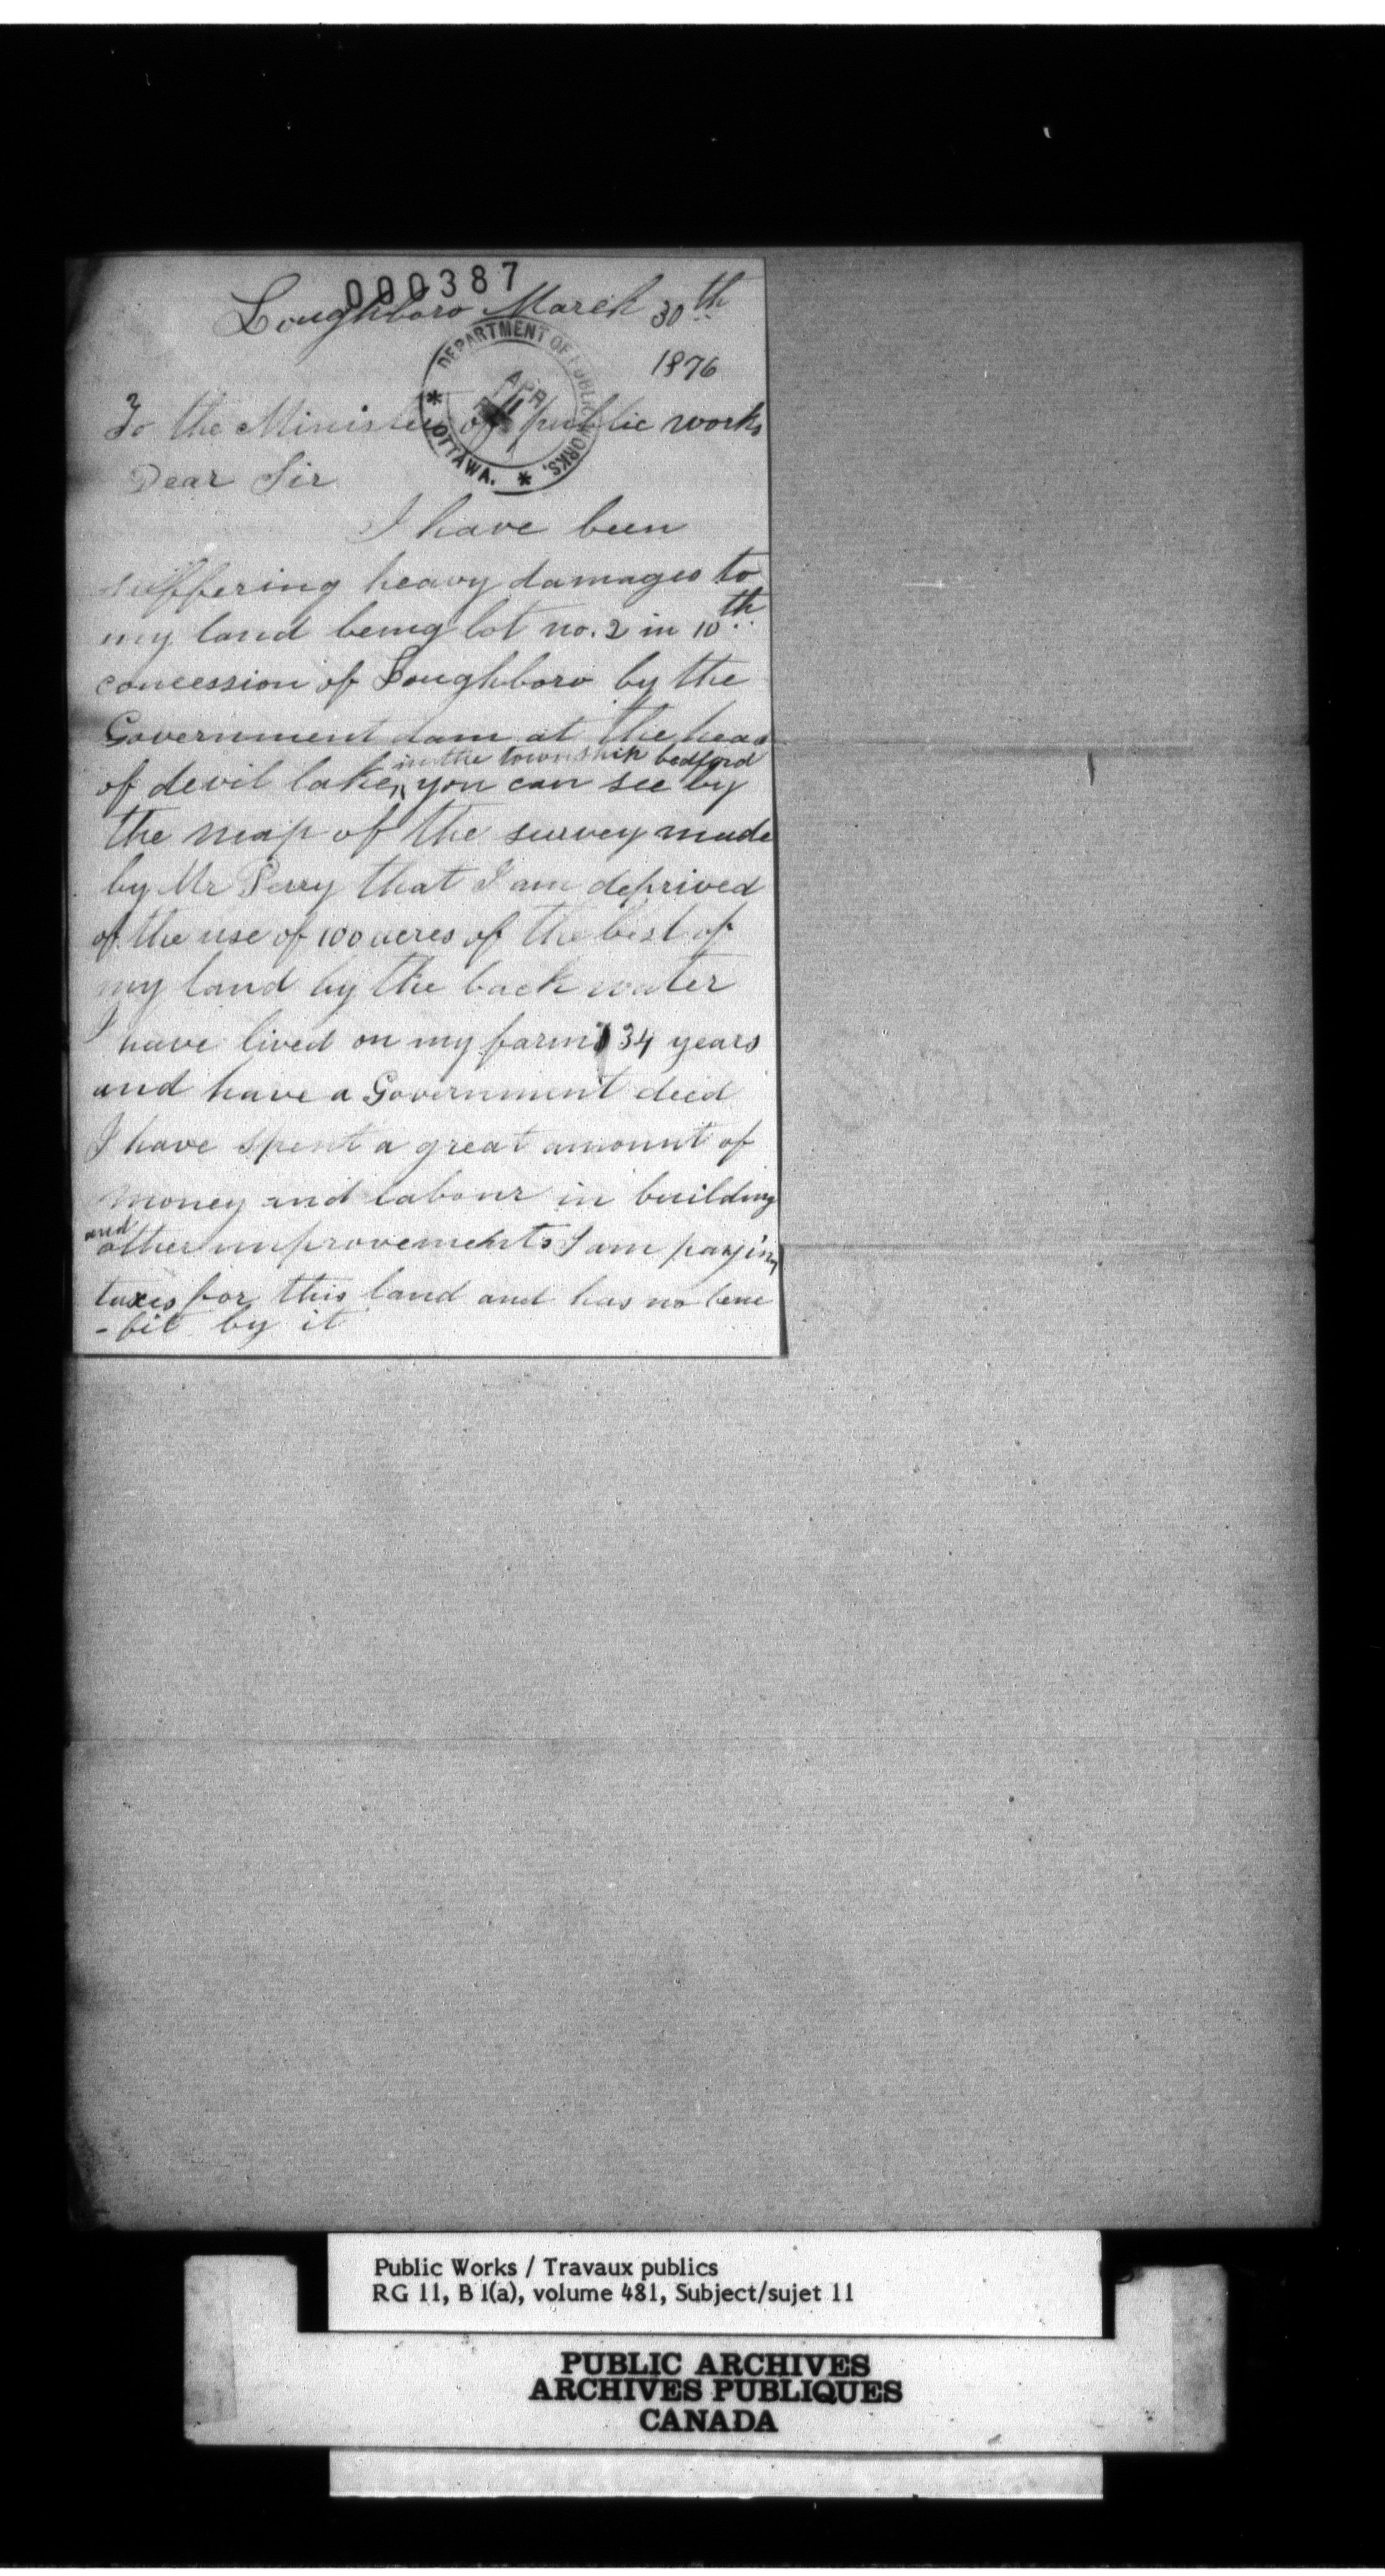 000387
Loughboro March 30th
1876
DEPARTMENT OF PUBLIC WORKS.
APR
11
* OTTAWA. *
To the Minister of public works
Dear Sir
I have been
suffering heavy damages to
my land being lot no. 2 in 10th
concession of Loughboro by the
Government dam at the head
in the township bedford
of devil lake, you can see by
the map of the survey made
by Mr Perry that I am deprived
of the use of 100 acres of the best of
my land by the back water
I have lived on my farm 34 years
and have a Government deed
I have spent a great amount of
money and labour in building
and
other improvements I am paying
taxes for this land and has no bene
-fit by it
Public Works / Travaux publics
RG 11, B 1(a), volume 481, Subject/sujet 11
PUBLIC ARCHIVES
ARCHIVES PUBLIQUES
CANADA